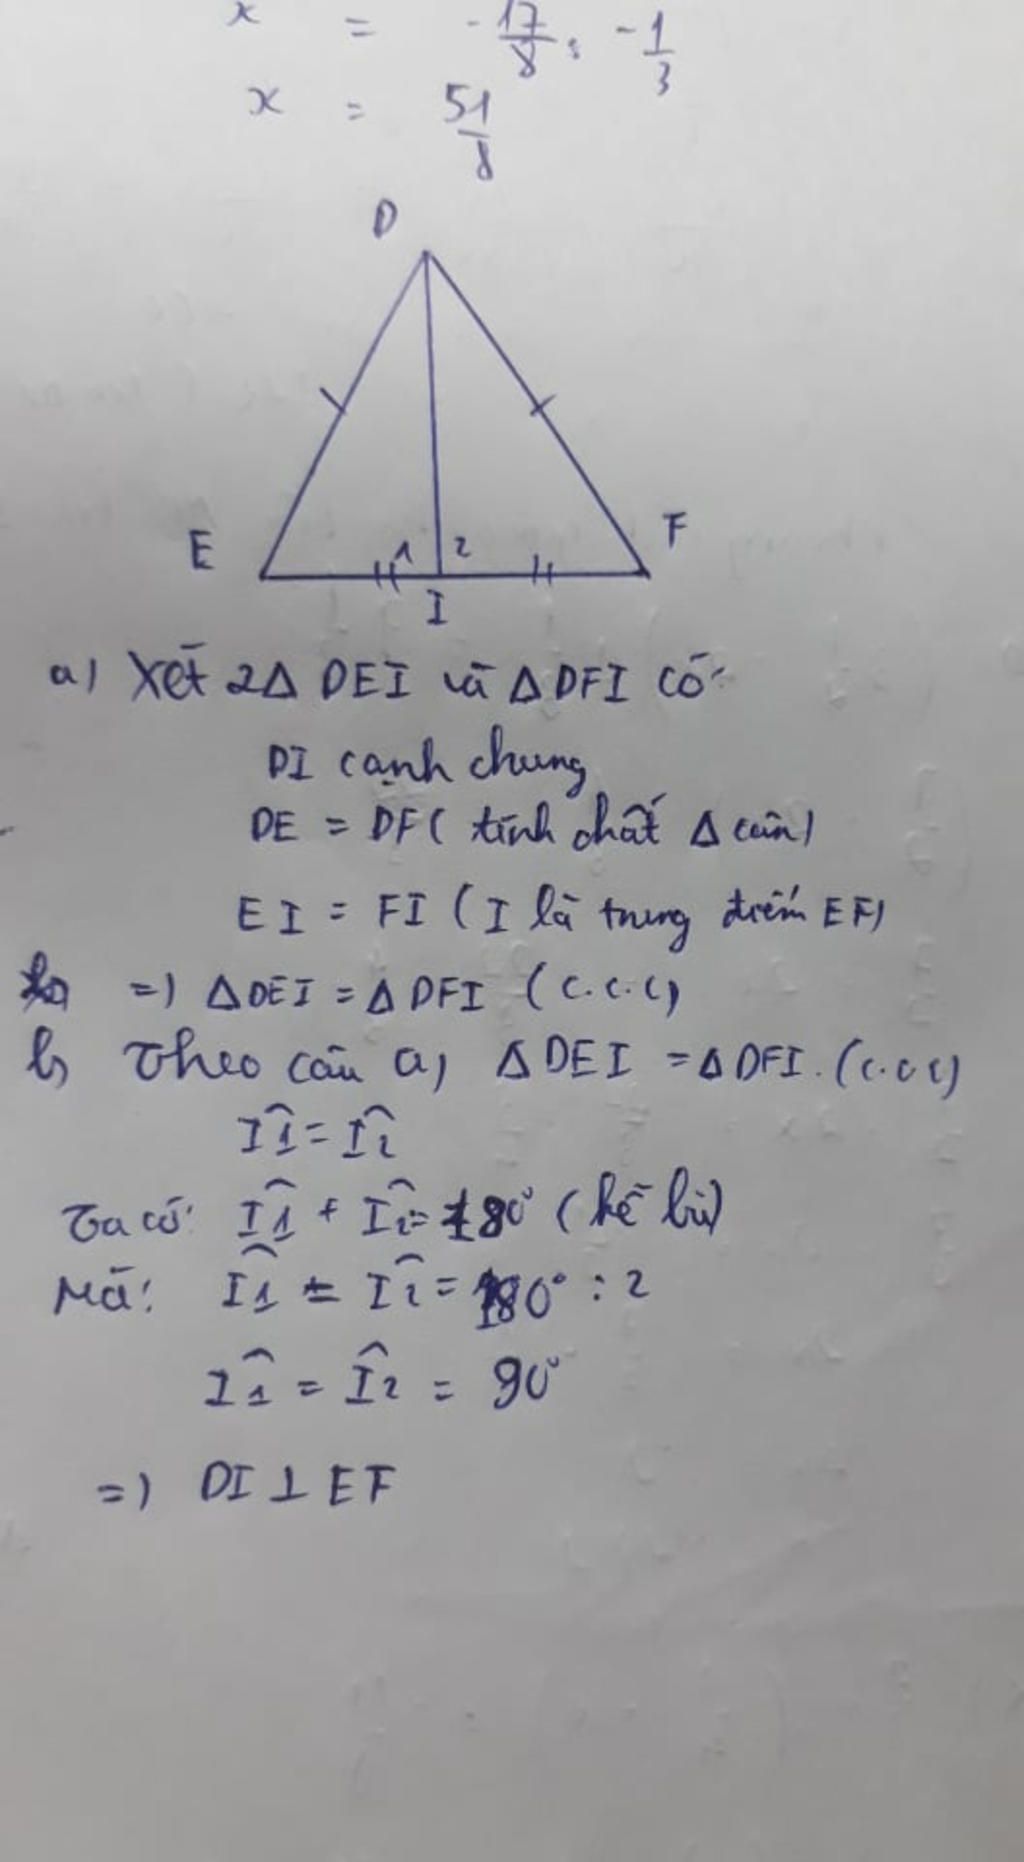 x = -17/8 : -1/3
x = 51/8
D
E
F
1 2
I
a) Xét 2Δ DEI và Δ DFI có:
DI cạnh chung
DE = DF ( tính chất Δ cân)
EI = FI ( I là trung điểm EF)
=) ΔDEI = Δ DFI (c.c.c)
b) Theo câu a) Δ DEI = Δ DFI. (c.c.c)
Î1 = Î2
Ta có: Î1 + Î2 = 180° (kề bù)
Mà: Î1 = Î2 = 180° : 2
Î1 = Î2 = 90°
=) DI ⊥ EF